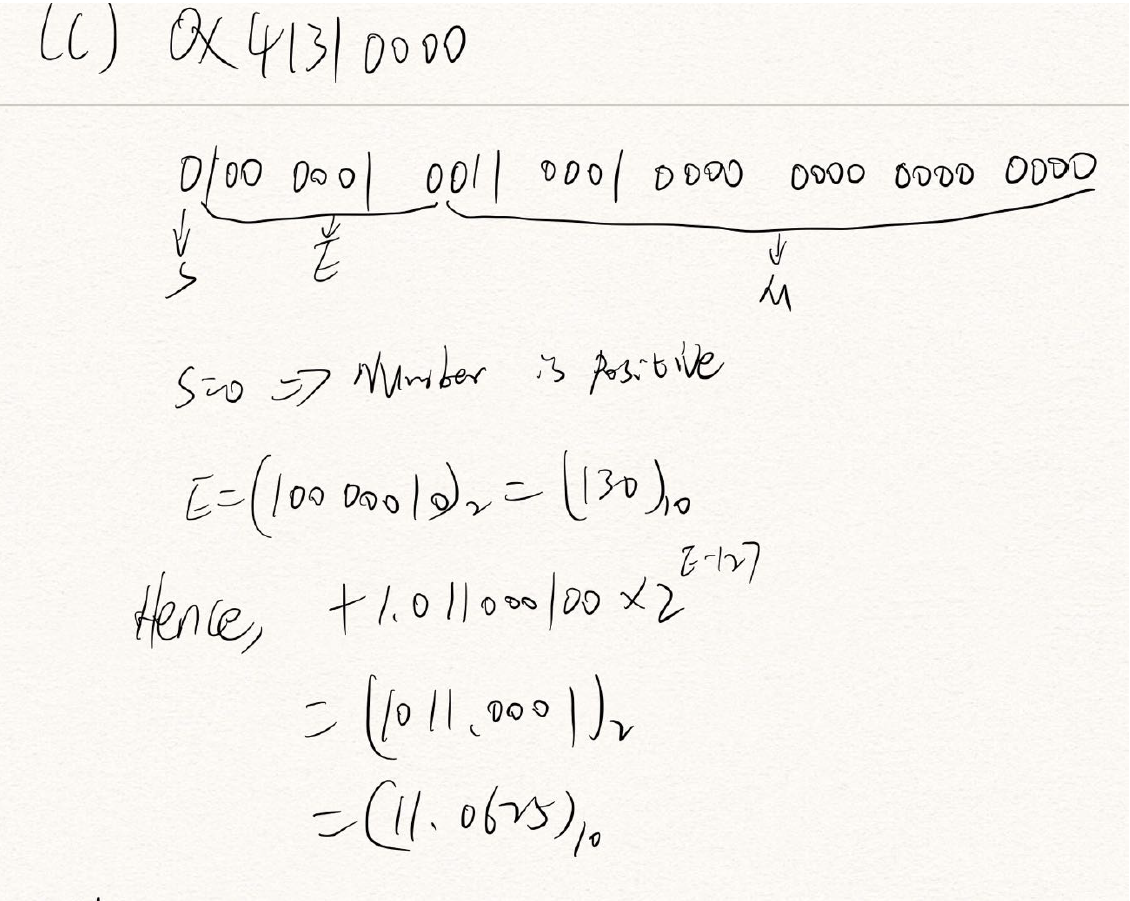 (C) 0x41310000
0100 0001 0011 0001 0000 0000 0000 0000
S E M
S=0 => Number is positive
E=(100 00010)₂ = (130)₁₀
Hence, +1.011000100 × 2^(E-127)
= (1011.0001)₂
= (11.0625)₁₀